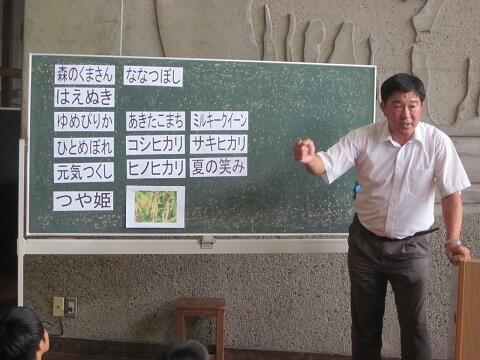 森のくまさん ななつぼし
はえぬき
ゆめぴりか あきたこまち ミルキークイーン
ひとめぼれ コシヒカリ サキヒカリ
元気つくし ヒノヒカリ 夏の笑み
つや姫